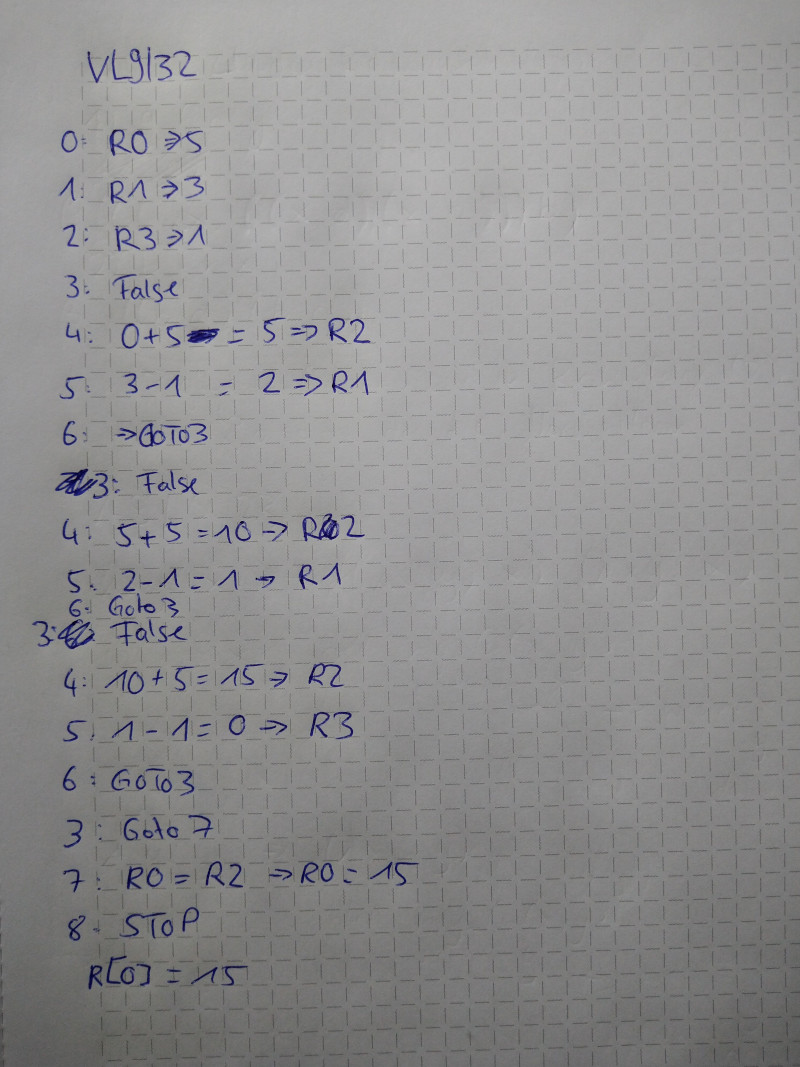 VL9/32
0: R0 => 5
1: R1 => 3
2: R3 => 1
3: False
4: 0+5 = 5 => R2
5: 3-1 = 2 => R1
6: => GOTO3
3: False
4: 5+5 = 10 -> R2
5: 2-1 = 1 -> R1
6: Goto 3
3: False
4: 10+5 = 15 => R2
5: 1-1 = 0 -> R3
6: GOTO3
3: Goto 7
7: R0 = R2 -> R0 = 15
8: STOP
R[0] = 15